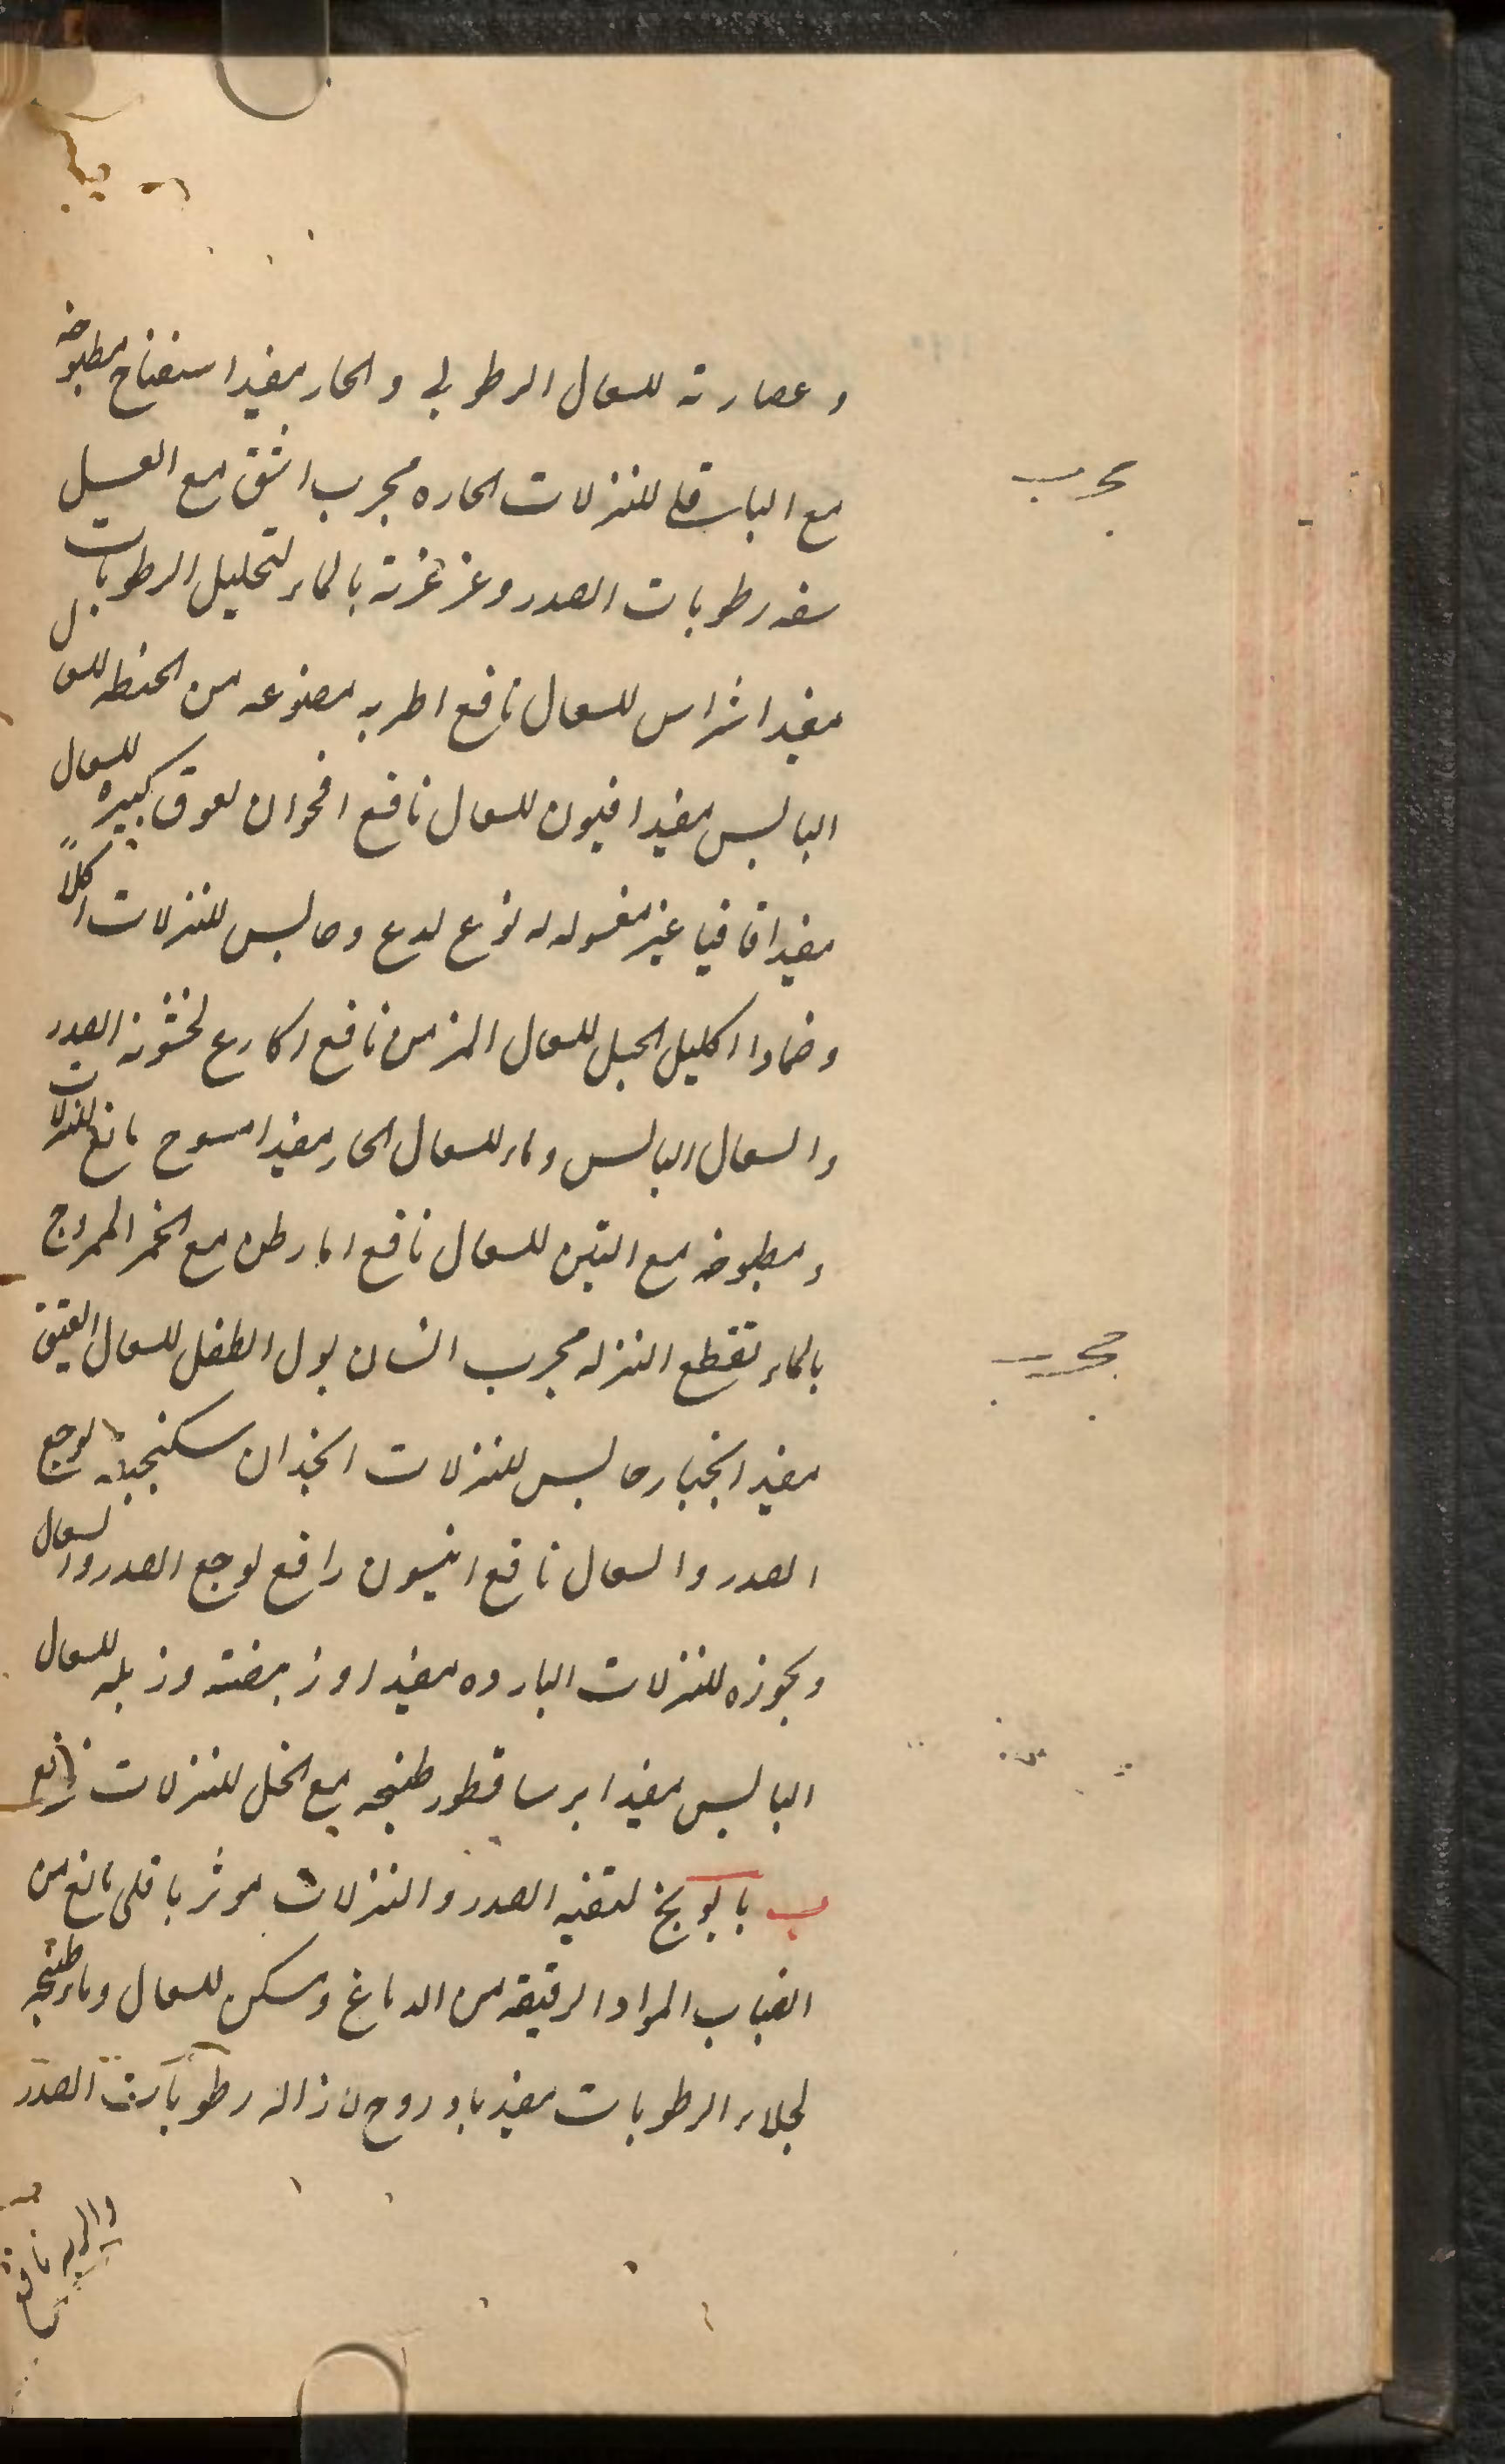 وعصارته للسعال الرطوبی والحار مفید اسفناخ مطبوخه
مع الباقلا للنزلات الحاره مجرب اشق مع العسل
مجرب
رطوبات الصدر وغرغرته بالماء لتحلیل الرطوبات
مفید اشراس للسعال نافع اطریه مصنوعه من الحنطه للسعال
الیابس مفید افیون للسعال نافع اقحوان لعوق کبیره للسعال
مفید اقاقیا غیر مغسوله له نوع لدع وحابس للنزلات اکلاً
وضمادا اکلیل الجبل للسعال المزمن نافع اکارع لخشونة الصدر
والسعال الیابس وماء للسعال الحار مفید امسوح مانع للنزلات
ومطبوخه مع التین للسعال نافع امارطن مع الخمر الممزوج
بالماء تقطع النزله مجرب انسان بول الطفل للسعال العتیق
مجرب
مفید انجبار حابس للنزلات انجدان سکنجبینه لوجع
الصدر والسعال نافع انیسون رافع لوجع الصدر والسعال
وبخوره للنزلات البارده مفید اوز بیضته وزبله للسعال
الیابس مفید ایرسا قطور طبیخه مع الخل للنزلات نافع
ب بابونج لتنقیه الصدر والنزلات موثر باقلی مانع من
انصباب المواد الرقیقه من الدماغ ومسکن للسعال وماء طبیخه
لجلاء الرطوبات مفید بادروج لازاله رطوبات الصدر
والریه نافع